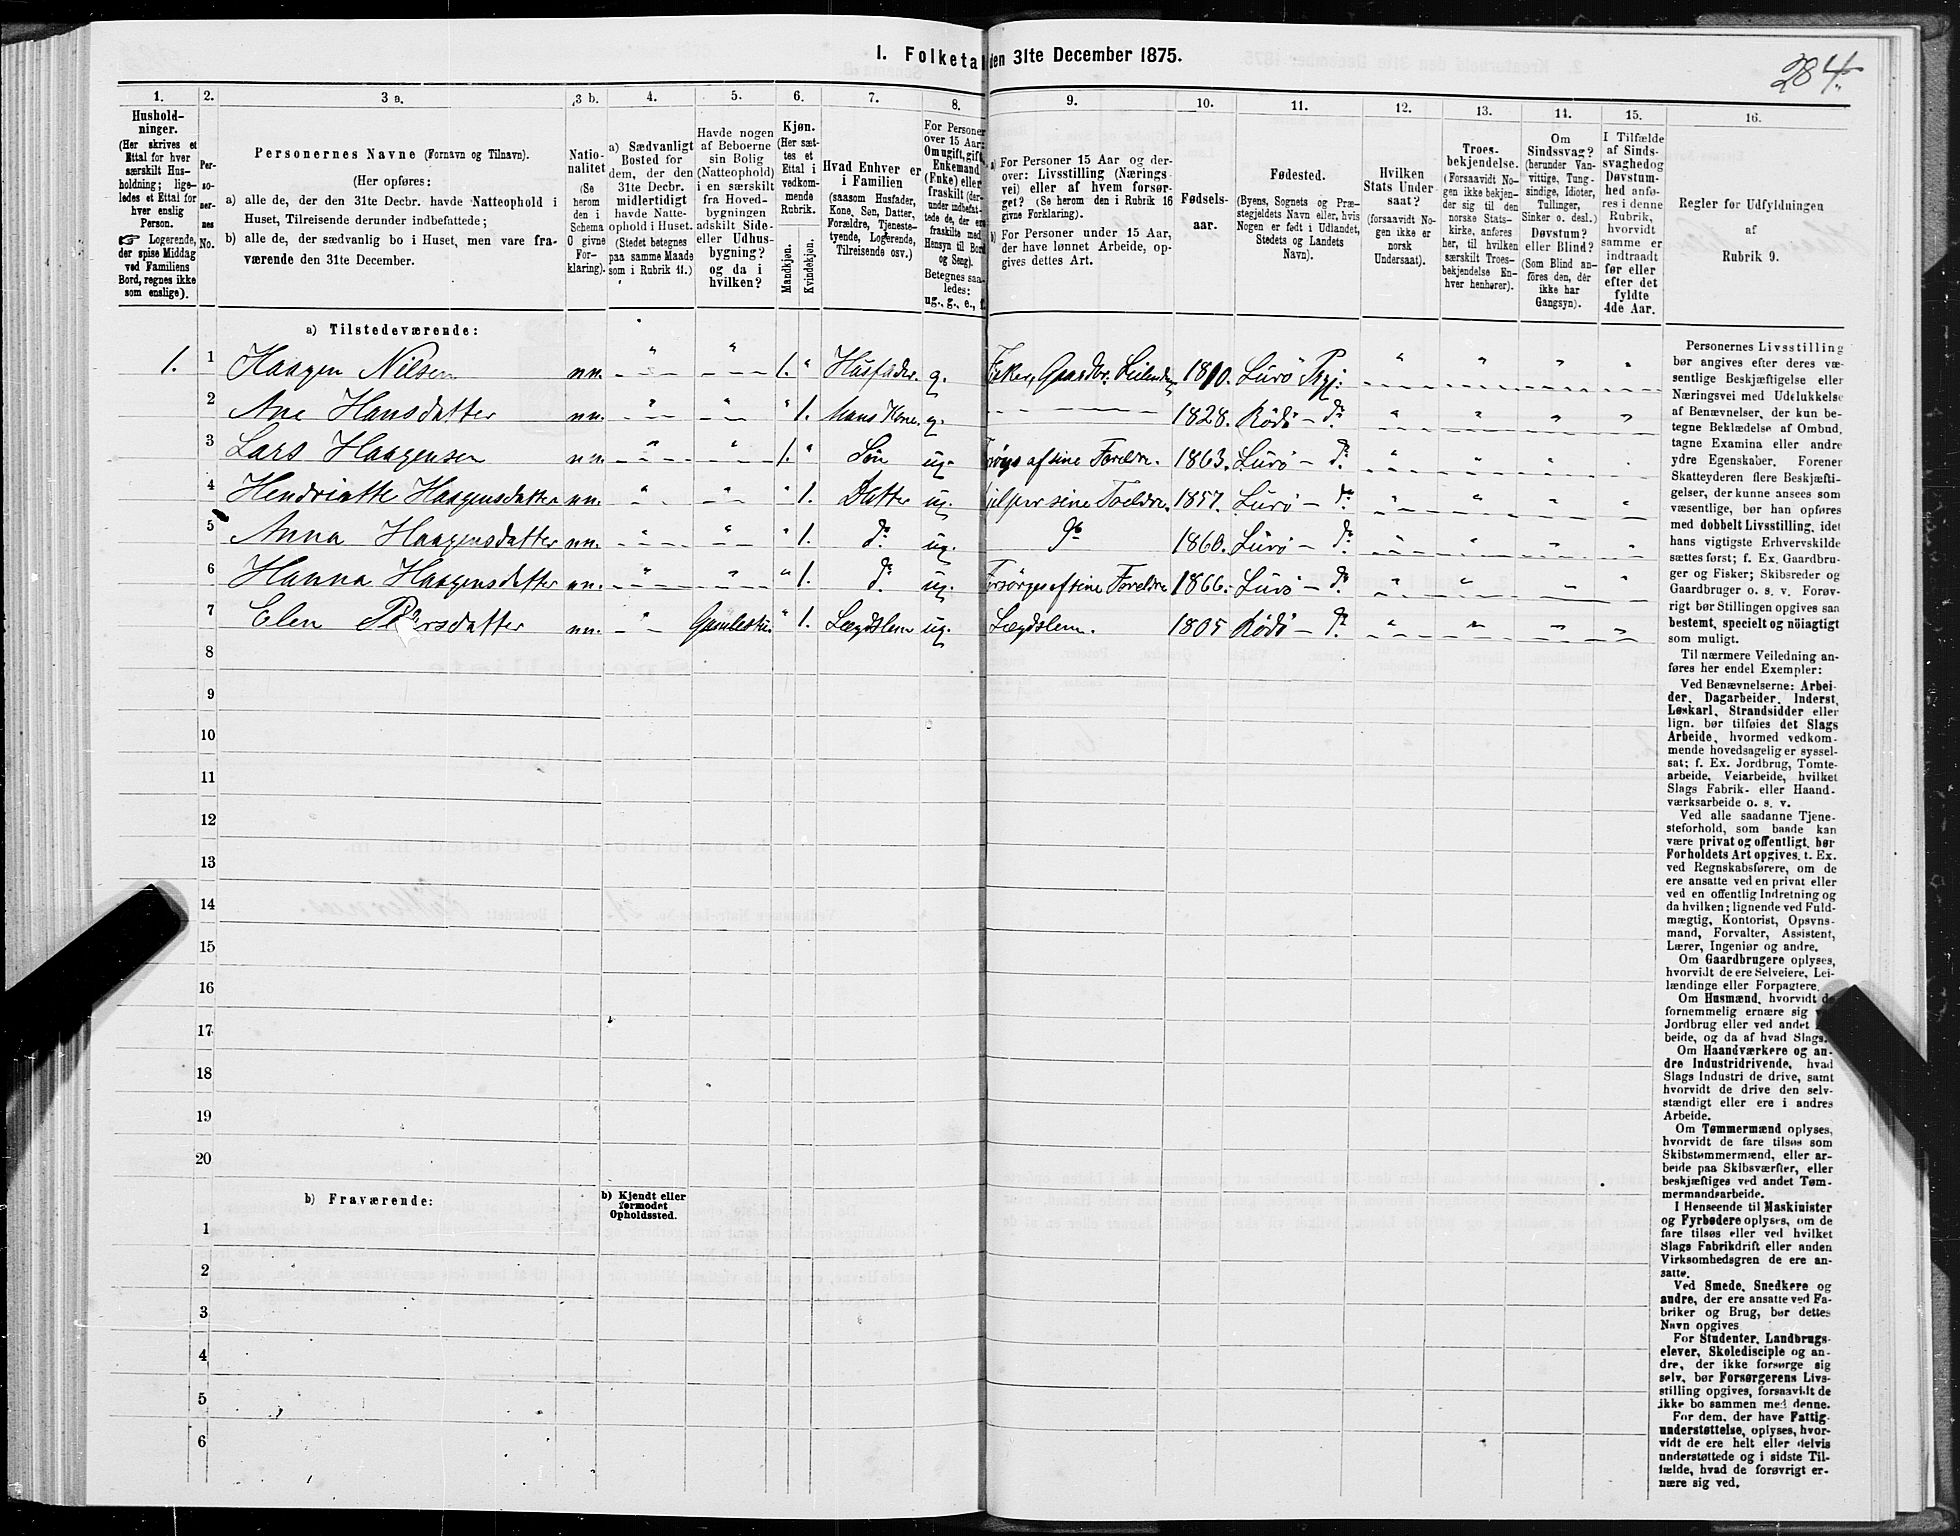 I. Folketa den 31te December 1875.
284.
1. 2. 3 a. 3 b. 4. 5. 6. 7. 8. 9. 10. 11. 12. 13. 14. 15. 16.
Hushold-
ninger.
(Her skrives et
Ettal for hver
særskilt Hus-
holdning; lige-
ledes et Ettal for
hver enslig
Person.
☞ Logerende,
der spise Middag
ved Familiens
Bord, regnes ikke
som enslige).
Per-
so-
ner-
nes
No.
Personernes Navne (Fornavn og Tilnavn).
(Her opføres:
a) alle de, der den 31te Decbr. havde Natteophold i
Huset, Tilreisende derunder indbefattede;
b) alle de, der sædvanlig bo i Huset, men vare fra-
værende den 31te December.
Natio-
nalitet
(Se
herom
den i
Schema
O givne
For-
klaring).
a) Sædvanligt
Bosted for
dem, der den
31te Decbr.
midlertidigt
havde Natte-
ophold i Huset.
(Stedet betegnes
paa samme Maade
som i Rubrik 11.)
Havde nogen
af Beboerne
sin Bolig
(Natteophold)
i en særskilt
fra Hoved-
bygningen
adskilt Side-
eller Udhus-
bygning?
og da i
hvilken?
Kjøn.
(Her sæt-
tes et
Ettal i
vedkom-
mende
Rubrik.
Mandkjøn.
Kvindekjøn.
Hvad Enhver er
i Familien
(saasom Husfader,
Kone, Søn, Datter,
Forældre, Tjeneste-
tyende, Logerende,
Tilreisende osv.)
For Personer
over 15 Aar:
Om ugift, gift,
Enkemand
(Enke) eller
fraskilt (der-
under indbefat-
tede de, der ere
fraskilte med
Hensyn til Bord
og Seng).
Betegnes saa-
ledes:
ug., g., e., f.
a) For Personer 15 Aar og der-
over: Livsstilling (Nærings-
vei) eller af hvem forsør-
get? (Se herom den i Rubrik 16
givne Forklaring).
b) For Personer under 15 Aar,
der have lønnet Arbeide, op-
gives dettes Art.
Fødsels-
aar.
Fødested.
(Byens, Sognets og Præ-
stegjeldets Navn eller, hvis
Nogen er født i Udlandet,
Stedets og Landets
Navn).
Hvilken
Stats Under-
saat?
(forsaavidt No-
gen ikke er
norsk
Undersaat).
Troes-
bekjendelse.
(Forsaavidt No-
gen ikke bekjen-
der sig til den
norske Stats-
kirke, anføres
her, til hvilken
særskilt Troes-
bekjendelse En-
hver henhører).
Om
Sindssvag?
(herunder Van-
vittige, Tung-
sindige, Idioter,
Tullinger,
Sinker o. desl.)
Døvstum?
eller Blind?
(Som Blind an-
føres den, der
ikke har
Gangsyn).
I Tilfælde
af Sinds-
svaghed og
Døvstum-
hed anfø-
res i denne
Rubrik,
hvorvidt
samme er
indtraadt
før eller
efter det
fyldte
4de Aar.
Regler for Udfyldningen
af
Rubrik 9.
a) Tilstedeværende:
1. 1 Haagen Nilsen nn. 1. Husfader. g. Fisker, Gaardbr. Leilending 1810. Lurö Prgj:
2 Ane Hansdatter nn. 1. hans Kone. g. 1828. Rödö – do
3 Lars Haagensen nn. 1. Sön ug. Forsörges af sine Foreldre. 1863. Lurö – do
4 Hendriætte Haagensdatter nn. 1. Datter ug. Hjelper sine Foreldre. 1857. Lurö – do
5 Anna Haagensdatter nn. 1. do ug. do 1860. Lurö – do
6 Hanna Haagensdatter nn. 1. do ug. Forsörges af sine Foreldre 1866. Lurö – do
7 Elen Pedersdatter nn. 1. Lægdslem ug. Lægdslem. 1805 Rödö – do
8
9
10
11
12
13
14
15
16
17
18
19
20
b) Fraværende:
b) Kjendt eller
formodet
Opholdssted.
1
2
3
4
5
6
Personernes Livsstilling
bør angives efter deres væ-
sentlige Beskjæftigelse eller
Næringsvei med Udelukkelse
af Benævnelser, der kun be-
tegne Beklædelse af Ombud,
tagne Examina eller andre
ydre Egenskaber. Forener
Skatteyderen flere Beskjæfti-
gelser, der kunne ansees som
væsentlige, bør han opføres
med dobbelt Livsstilling, idet
hans vigtigste Erhvervskilde
sættes først; f. Ex. Gaardbru-
ger og Fisker; Skibsreder og
Gaardbruger o. s. v. Forøv-
rigt bør Stillingen opgives saa
bestemt, specielt og nöiagtigt
som muligt.
Til nærmere Veiledning an-
føres her endel Exempler:
Ved Benævnelserne: Arbei-
der, Dagarbeider, Inderst,
Løskarl, Strandsidder eller
lign. bør tilføies det Slags
Arbeide, hvormed vedkom-
mende hovedsagelig er syssel-
sat; f. Ex. Jordbrug, Tomte-
arbeide, Veiarbeide, hvilket
Slags Fabrik- eller Haand-
værksarbeide o. s. v.
Ved alle saadanne Tjene-
steforhold, som baade kan
være privat og offentligt, bør
Forholdets Art opgives, t. Ex.
ved Regnskabsførere, om de
ere ansatte ved en privat eller
ved en offentlig Indretning og
da hvilken; lignende ved Fuld-
mægtig, Kontorist, Opsyns-
mand, Forvalter, Assistent,
Lærer, Ingeniør og andre.
Om Gaardbrugere oplyses,
hvorvidt de ere Selveiere, Lei-
lændinge eller Forpagtere.
Om Husmænd, hvorvidt de
fornemmelig ernære sig
Jordbrug eller ved andet
beide, og da af hvad Slags.
Om Haandværkere og an-
dre Industridrivende, hvad
Slags Industri de drive, samt
hvorvidt de drive den selv-
stændigt eller ere i andres
Arbeide.
Om Tømmermænd oplyses,
hvorvidt de fare tilsøs som
Skibstømmermænd, eller ar-
beide paa Skibsværfter, eller
beskjæftiges ved andet Tøm-
mermandsarbeide.
I Henseende til Maskinister
og Fyrbødere oplyses, om de
fare tilsøs eller ved hvilket
Slags Fabrikdrift eller anden
Virksomhedsgren de ere an-
satte.
Ved Smede, Snedkere og
andre, der ere ansatte ved Fa-
briker og Brug, bør dettes
Navn opgives.
For Studenter, Landbrugs-
elever, Skoledisciple og an-
dre, der ikke forsørge sig
selv, bør Forsørgerens Livs-
stilling opgives, forsaavidt de
ikke bo sammen med denne.
For dem, der have Fattig-
understøttelse, oplyses, hvor-
vidt de ere helt eller delvis
understøttede og i sidste Til-
fælde, hvad de forøvrigt er-
nære sig ved.